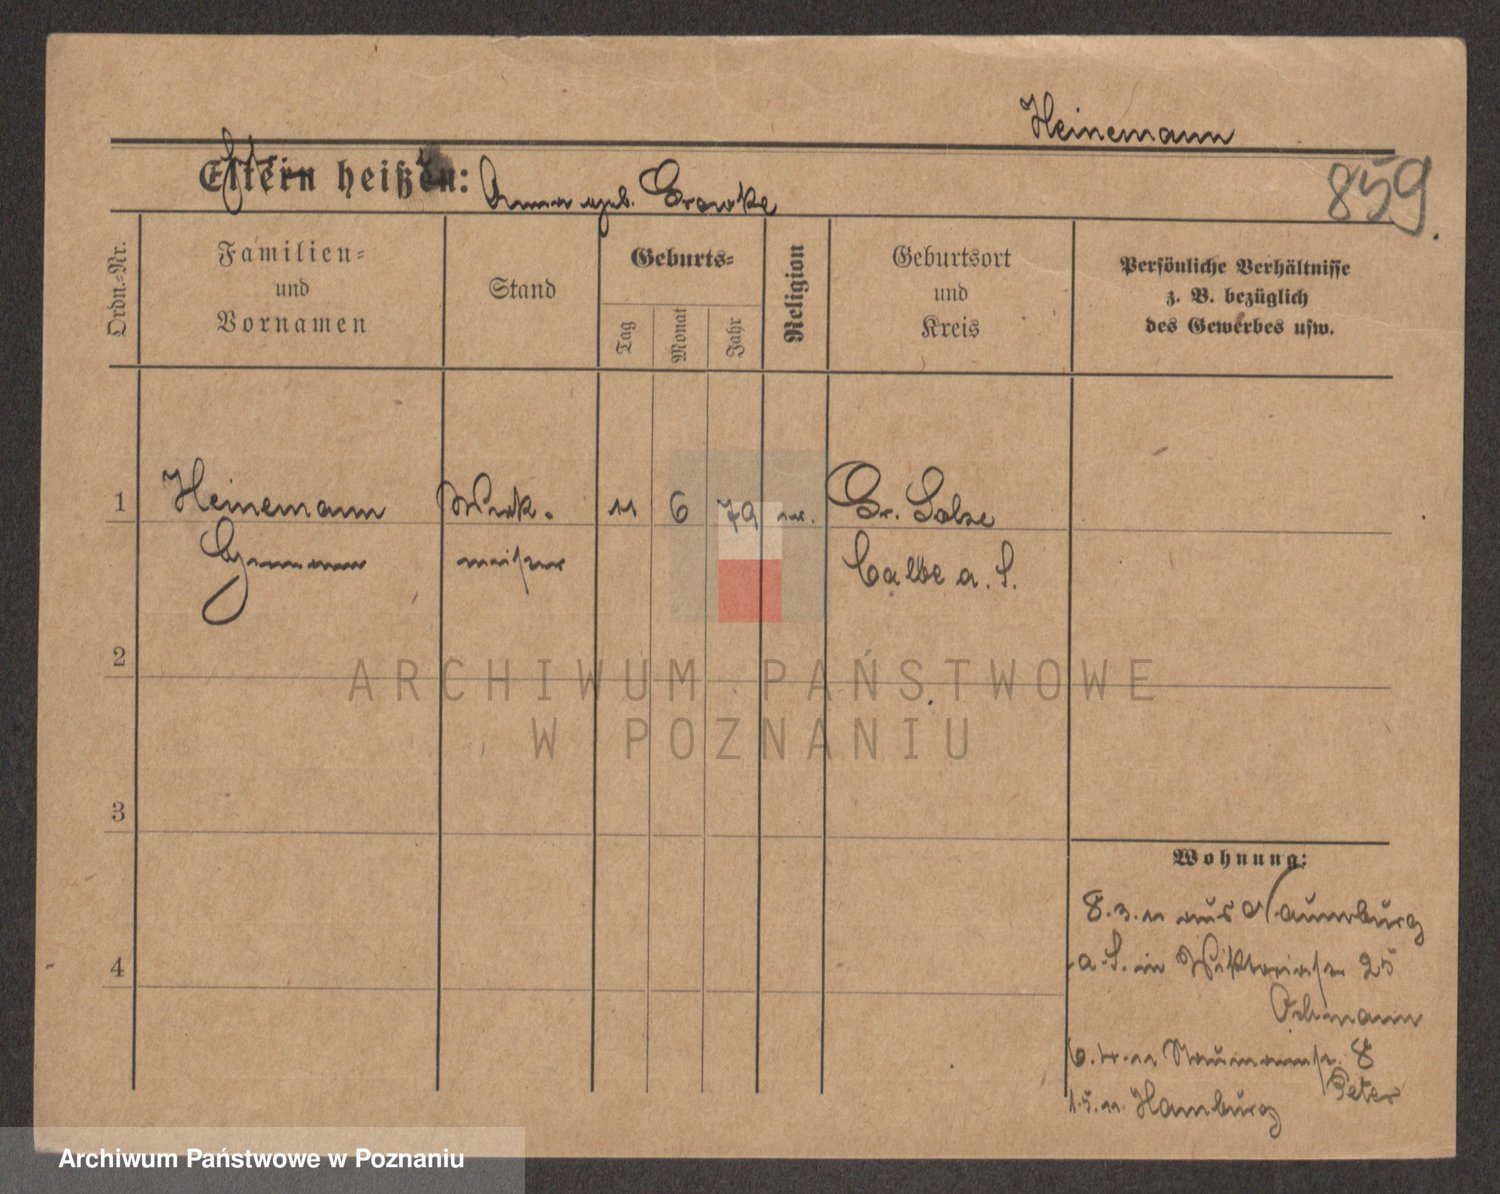 Heinemann
Eltern heißen: Anna geb.
859.
Ordn.-Nr.
Familien-
und
Vornamen
Stand
Geburts-
Tag
Monat
Jahr
Religion
Geburtsort
und
Kreis
Persönliche Verhältnisse
z. B. bezüglich
des Gewerbes usw.
1 Heinemann Werk- 11 6 79 ev. Gr. Salze
Hermann meister Calbe a. S.
2
ARCHIWUM PAŃSTWOWE
W POZNANIU
3
4
Wohnung:
8.3.11 aus Naumburg
a. S. in Viktoriastr 25
6.4.11 Naumannstr. 8
Peter
1.5.11. Hamburg
Archiwum Państwowe w Poznaniu